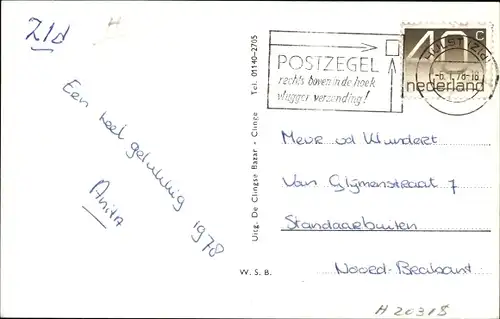 Zld
H
Een heel gelukkig 1978
Anita
Uitg. De Clingse Bazar - Clinge Tel. 01140-2705
W. S. B.
POSTZEGEL
rechts boven in de hoek
vlugger verzending!
40 c
nederland
HULST (Zld)
-6. 1. 78-18
Mevr vd Wundert
Van Glymenstraat 7
Standaarbuiten
Noord-Brabant
H 20318